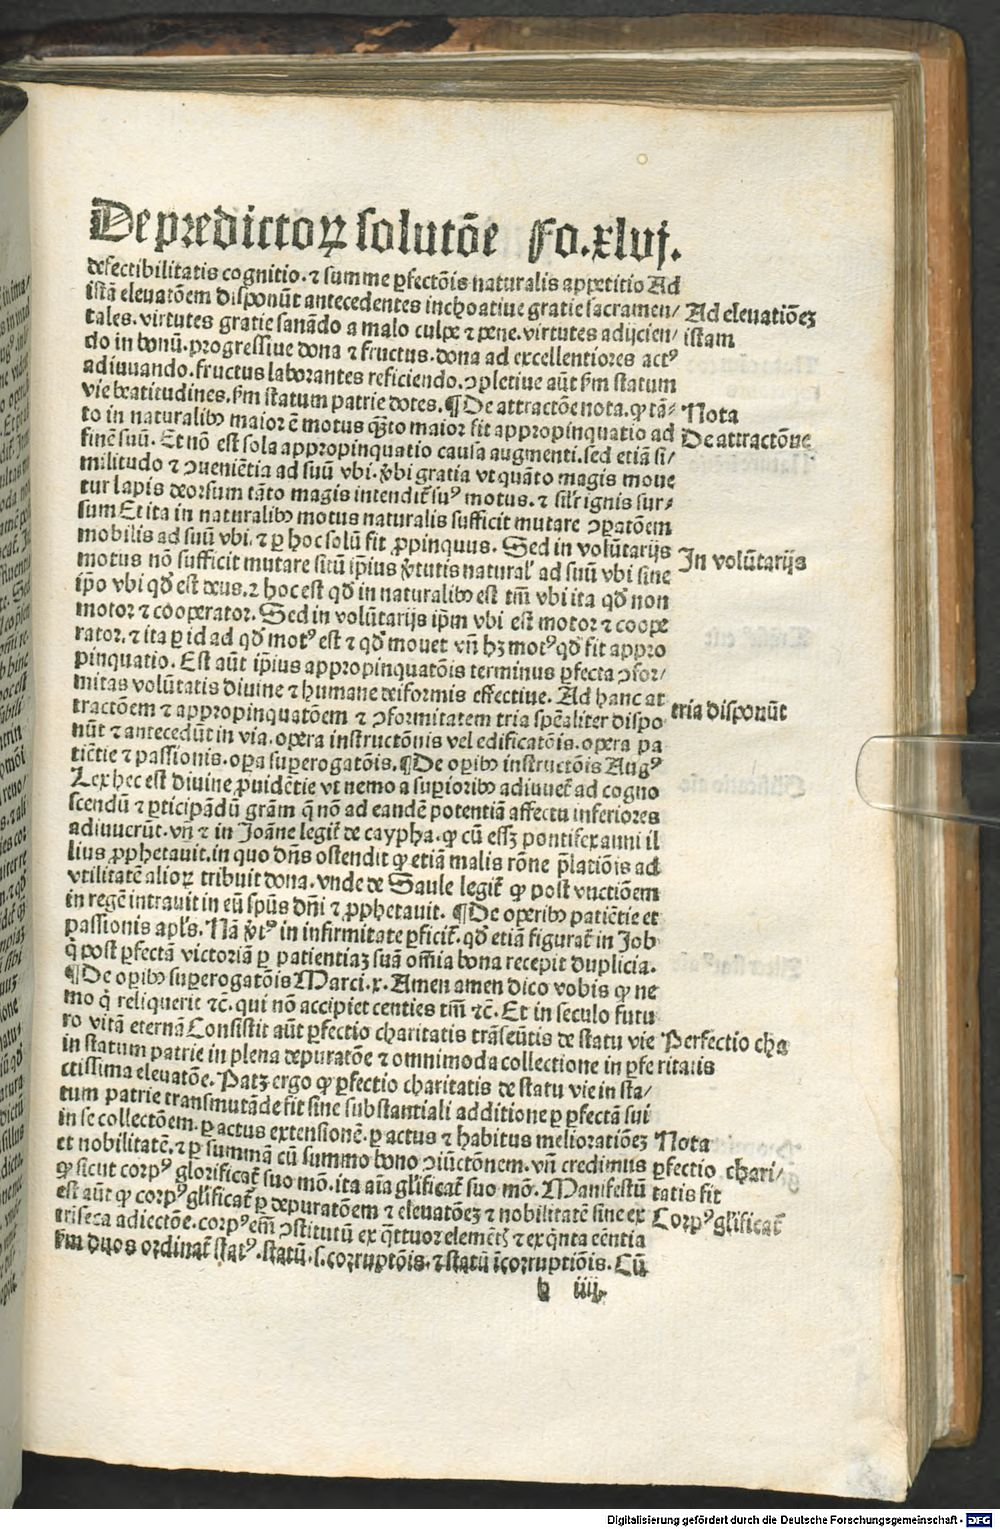 De predictoꝝ solutōe Fo.xlvj.
defectibilitatis cognitio. ⁊ summe ꝑfectōis naturalis appetitio Ad
istā eleuatōem disponūt antecedentes inchoatiue gratie sacramen/
tales. virtutes gratie sanādo a malo culpe ⁊ pene. virtutes adijcien/
do in bonū. progressiue dona ⁊ fructus. dona ad excellentiores actꝰ
adiuuando. fructus laborantes reficiendo. ɔpletiue aūt ẜm statum
vie beatitudines. ẜm statum patrie dotes. ¶ De attractōe nota. ꝙ tā⸗
to in naturalibꝰ maior ē motus quāto maior fit appropinquatio ad
finē suū. Et nō est sola appropinquatio causa augmenti. sed etiā si/
militudo ⁊ ɔueniētia ad suū vbi. v̓bi gratia vt quāto magis moue
tur lapis deorsum tāto magis intendit᷑ suꝰ motus. ⁊ silr̄ ignis sur⸗
sum Et ita in naturalibꝰ motus naturalis sufficit mutare ɔparatōem
mobilis ad suū vbi. ⁊ ꝑ hoc solū fit ꝓpinquus. Sed in volūtarijs
motus nō sufficit mutare sitū ipsius v̓tutis natural̓ ad suū vbi sine
ip̄o vbi qd̓ est deus. ⁊ hoc est qd̓ in naturalibꝰ est tm̄ vbi ita qd̓ non
motor ⁊ cooperator. Sed in volūtarijs ip̄m vbi est motor ⁊ coope
rator. ⁊ ita ꝑ id ad qd̓ motꝰ est ⁊ qd̓ mouet vn̄ hꝫ motꝰ qd̓ fit appro
pinquatio. Est aūt ip̄ius appropinquatōis terminus ꝑfecta ɔfor/
mitas volūtatis diuine ⁊ humane deiformis effectiue. Ad hanc at
tractōem ⁊ appropinquatōem ⁊ ɔformitatem tria spēaliter dispo
nūt ⁊ antecedūt in via. opera instructōnis vel edificatōis. opera pa
tiētie ⁊ passionis. oꝑa suꝑerogatōis. ¶ De oꝑibꝰ instructōis Augꝰ
Lex hec est diuine ꝓuidētie vt nemo a suꝑioribꝰ adiuuet᷑ ad cogno
scendū ⁊ ꝑticipādū grām q̄ nō ad eandē potentiā affectu inferiores
adiuuerūt. vn̄ ⁊ in Joāne legit᷑ de caypha. ꝙ cū essꝫ pontifex anni il
lius ꝓphetauit. in quo dn̄s ostendit ꝙ etiā malis rōne p̄latiōis ad
vtilitatē alioꝝ tribuit dona. vnde de Saule legit᷑ ꝙ post vnctiōem
in regē intrauit in eū sp̄us dn̄i ⁊ ꝓphetauit. ¶ De operibꝰ patiētie et
passionis apl̓s. Nā v̓tꝰ in infirmitate ꝑficit᷑. qd̓ etiā figurat᷑ in Job
q̇ post ꝑfectā victoriā ꝑ patientiaꝫ suā om̄ia bona recepit duplicia.
¶ De oꝑibꝰ suꝑerogatōis Marci. x. Amen amen dico vobis ꝙ ne
mo q̇ reliquerit ⁊c̄. qui nō accipiet centies tm̄ ⁊c̄. Et in seculo futu
ro vitā eternā Consistit aūt ꝑfectio charitatis trāseūtis de statu vie
in statum patrie in plena depuratōe ⁊ omnimoda collectione in ꝑfe
ctissima eleuatōe. Patꝫ ergo ꝙ ꝑfectio charitatis de statu vie in sta/
tum patrie transmutāde fit sine substantiali additione ꝑ ꝑfectā sui
in se collectōem. ꝑ actus extensionē. ꝑ actus ⁊ habitus meliorationeꝫ
et nobilitatē. ⁊ ꝑ summā cū summo bono ɔiūctōnem. vn̄ credimus
ꝙ sicut corpꝰ glorificat᷑ suo mō. ita aīa gl̓ificat᷑ suo mō. Manifestū
est aūt ꝙ corpꝰ gl̓ificat᷑ ꝑ depuratōem ⁊ eleuatōeꝫ ⁊ nobilitatē sine ex
triseca adiectōe. corpꝰ em̄ ɔstitutū ex q̄ttuor elemētꝭ ⁊ ex q̄nta eēntia
ẜm duos ordinat᷑ statꝰ. statū. s. corruptōis. ⁊ statū īcorruptiōis. Cū
h iiij
Ad eleuatiōeꝫ
istam
Nota
De attractōne
In volūtarijs
tria disponūt
Perfectio cha
ritatis
Nota
ꝑfectio chari/
tatis fit
Corpꝰ gl̓ificat᷑
Digitalisierung gefördert durch die Deutsche Forschungsgemeinschaft - DFG